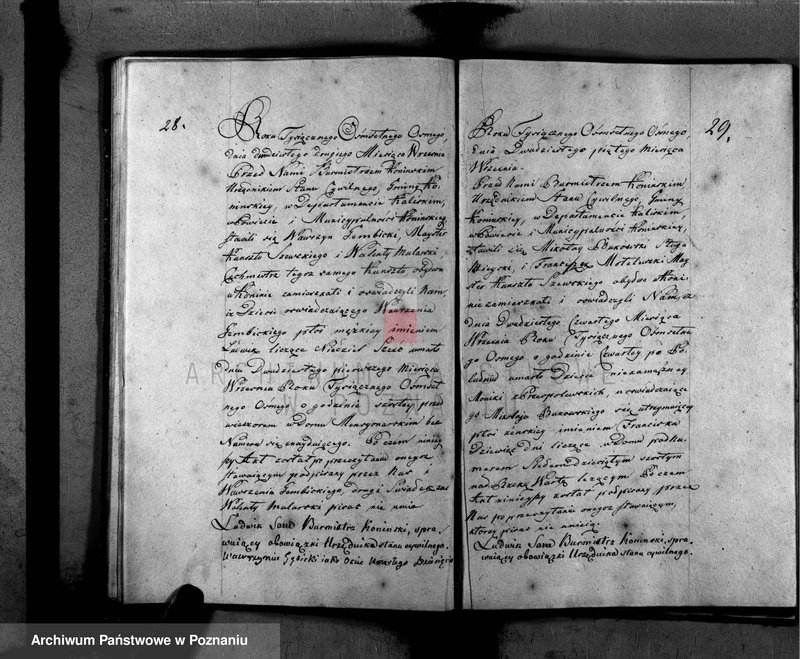 28.
Roku Tysiącznego Ośmsetnego Osmego,
dnia dwudziestego drugiego Miesiąca Września
Przed Nami Burmistrzem Koninskim
Urzędnikiem Stanu Cywilnego, Gminy Ko-
ninskiey, w Departamencie Kaliskim,
w Powiecie i Municypalności Koninskiey
stawili się Wawrzyn Gembicki, Mayster
Kunsztu Szewskiego i Walenty Malarski
Cechmistrz tegoż samego Kunsztu obydwa
w Koninie zamieszkali i oswiadczyli Nam,
iż Dziecie oswiadczaiącego Wawrzenia
Gembickiego płci męzkiey imieniem
Ludwik liczące Niedziel Szesc umarło
dnia Dwudziestego pierwszego Miesiąca
Września Roku Tysiącznego Ośmset
nego Osmego o godzinie szostey przed
wieczorem w Domu bez
Numeru się znayduiącego. Po czem niniey
szy Akt został po przeczytaniu onegoż
stawaiącym podpisany przez Nas i
Wawrzenia Gembickiego, drugi Swiadek zas
Walenty Malarski pisac nie umie
Ludwik Burmistrz Koninski, spra-
wuiący obowiązki Urzędnika stanu cywilnego.
Wawrzynie Gębicki iako Ociec Umarłego Dziecięcia
29.
Roku Tysiącznego Ośmsetnego Osmego,
Dnia Dwudziestego piątego Miesiąca
Września.
Przed Nami Burmistrzem Koninskim
Urzędnikiem Stanu Cywilnego, Gminy
Koninskiey, w Departamencie Kaliskim,
w Powiecie i Municypalności Koninskiey,
stawili się Mikołay Bukowski Sługa
Mieyski, i Franciszek Motelewski May
ster Kunsztu Szewskiego obydwa w Koni-
nie zamieszkali i oswiadczyli Nam, iż
dnia Dwudziestego Czwartego Miesiąca
Września Roku Tysiącznego Osmsetne
go Osmego o godzinie Czwartey po Po-
łudniu umarło Dziecie niezamężney
Moniki z, u oswiadczaiące
go Mikołaja Bukowskiego się utrzymuiącey
płci żenskiey imieniem Franciszka
Dziewięc dni liczące w Domu pod Nu-
merem Siedemdziesiątym szostym
nad Rzeką Wartą leżącym. Po czem
Akt ninieyszy został podpisany przez
Nas po przeczytaniu onegoż stawaiącym,
ktorzy pisac nie umieią.
Ludwik Burmistrz Koninski, spra-
wuiący obowiązki Urzędnika stanu cywilnego.
Archiwum Państwowe w Poznaniu